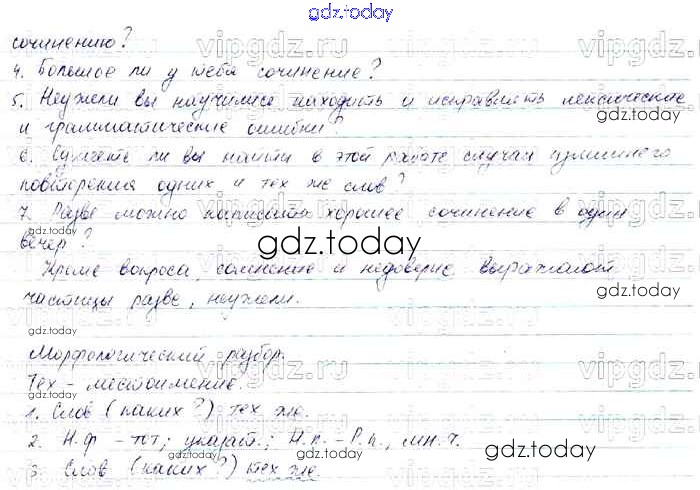 gdz.today
сочинению?
4. Большое ли у тебя сочинение?
5. Неужели вы научились находить и исправлять лексические
и грамматические ошибки?
6. Сумеете ли вы найти в этой работе случаи излишнего
повторения одних и тех же слов?
7. Разве можно написать хорошее сочинение в один
вечер?
Кроме вопроса, сомнение и недоверие выражают
частицы разве, неужели.
Морфологический разбор.
Тех - местоимение.
1. Слов (каких?) тех же.
2. Н.ф - тот; указат.; Н.п. - Р.п., мн.ч.
3. Слов (каких?) тех же.